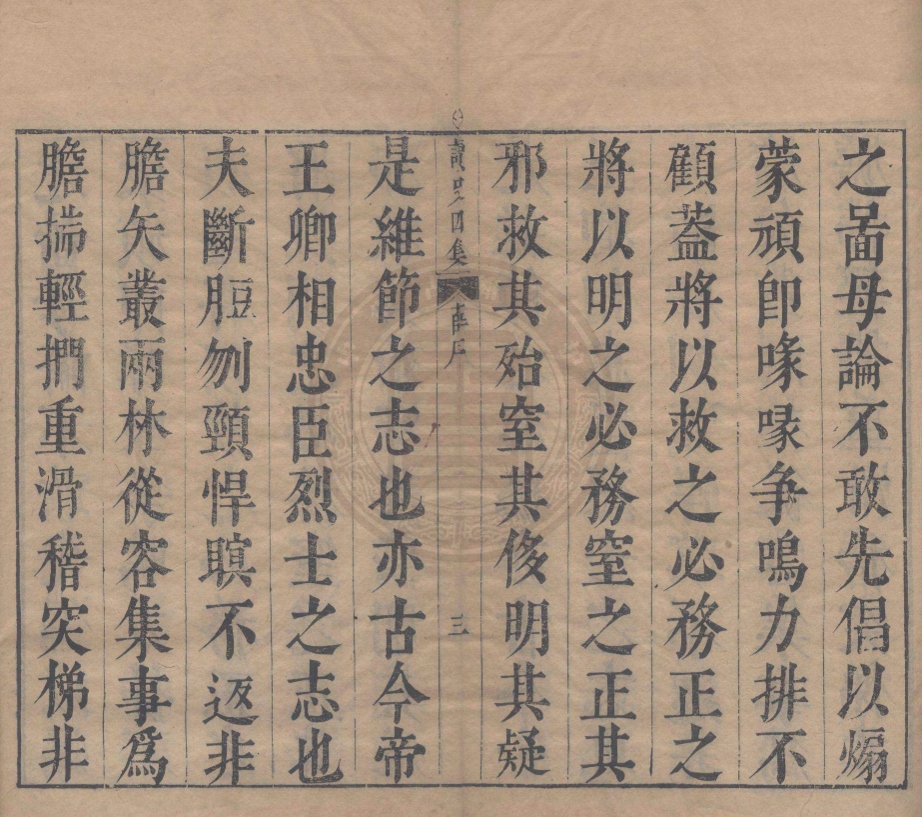 之啚母論不敢先倡以煽
蒙頑即喙喙争鳴力排不
顧葢將以救之必務正之
將以明之必務窒之正其
邪救其殆窒其侈明其疑
讀史四集
三
是維節之志也亦古今帝
王卿相忠臣烈士之志也
夫斷脰刎頸悍瞑不返非
膽矢叢兩林從容集事爲
膽揣輕捫重滑稽突梯非